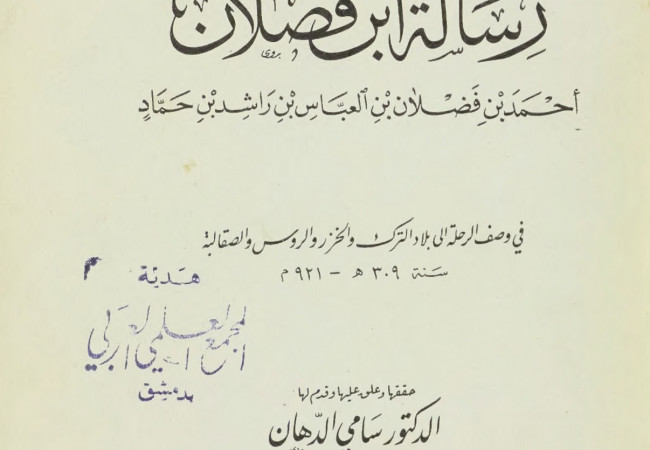 رسالة ابن فضلان
أحْمَد بْنِ فَضْلَان بْنِ العبَّاس بْنِ رَاشِد بْنِ حَمَّادٍ
في وصف الرحلة الى بلاد الترك والخزر والروس والصقالبة
سنة ٣٠٩ هـ - ٩٢١ م
هدية
المجمع العلمي العربي
بدمشق
حققها وعلق عليها وقدم لها
الدكتور سامي الدّهان